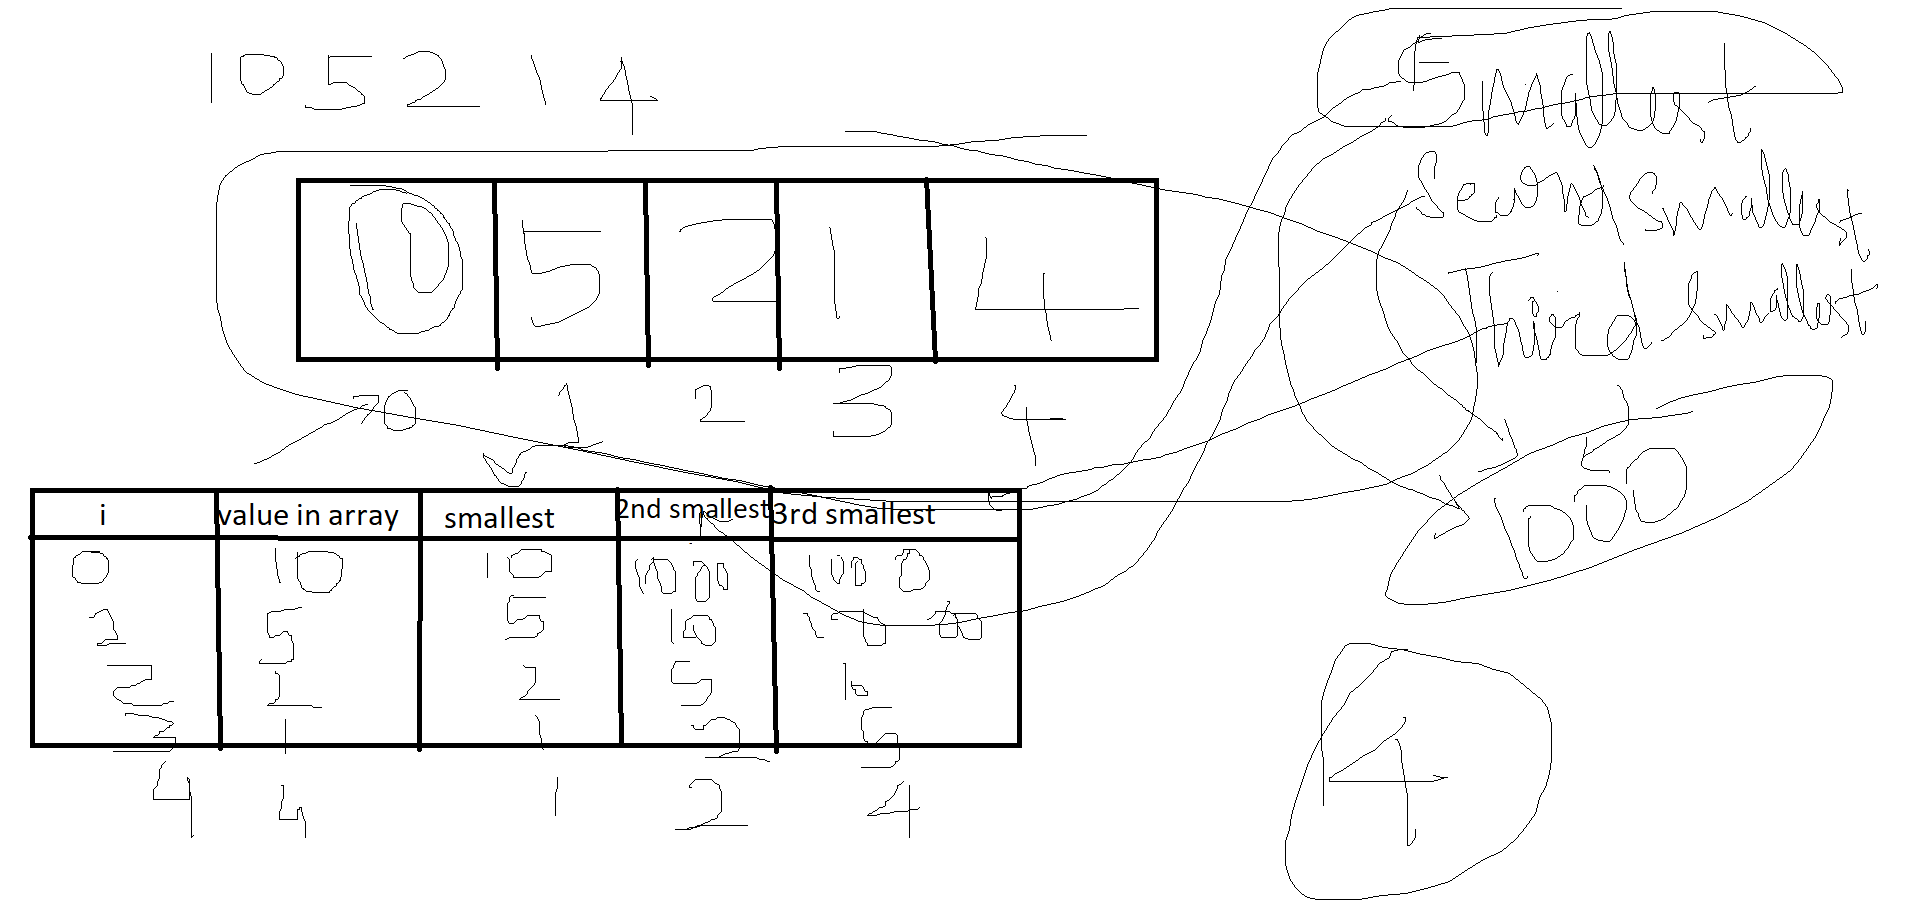 10 5 2 1 4
Smallest
Second smallest
Third smallest
10 5 2 1 4
0 1 2 3 4
1000
i value in array smallest 2nd smallest 3rd smallest
0 10 10 1000 1000
5 5 10 1000
2 2 5 10
3 1 1 2 5
4 4 1 2 4
4